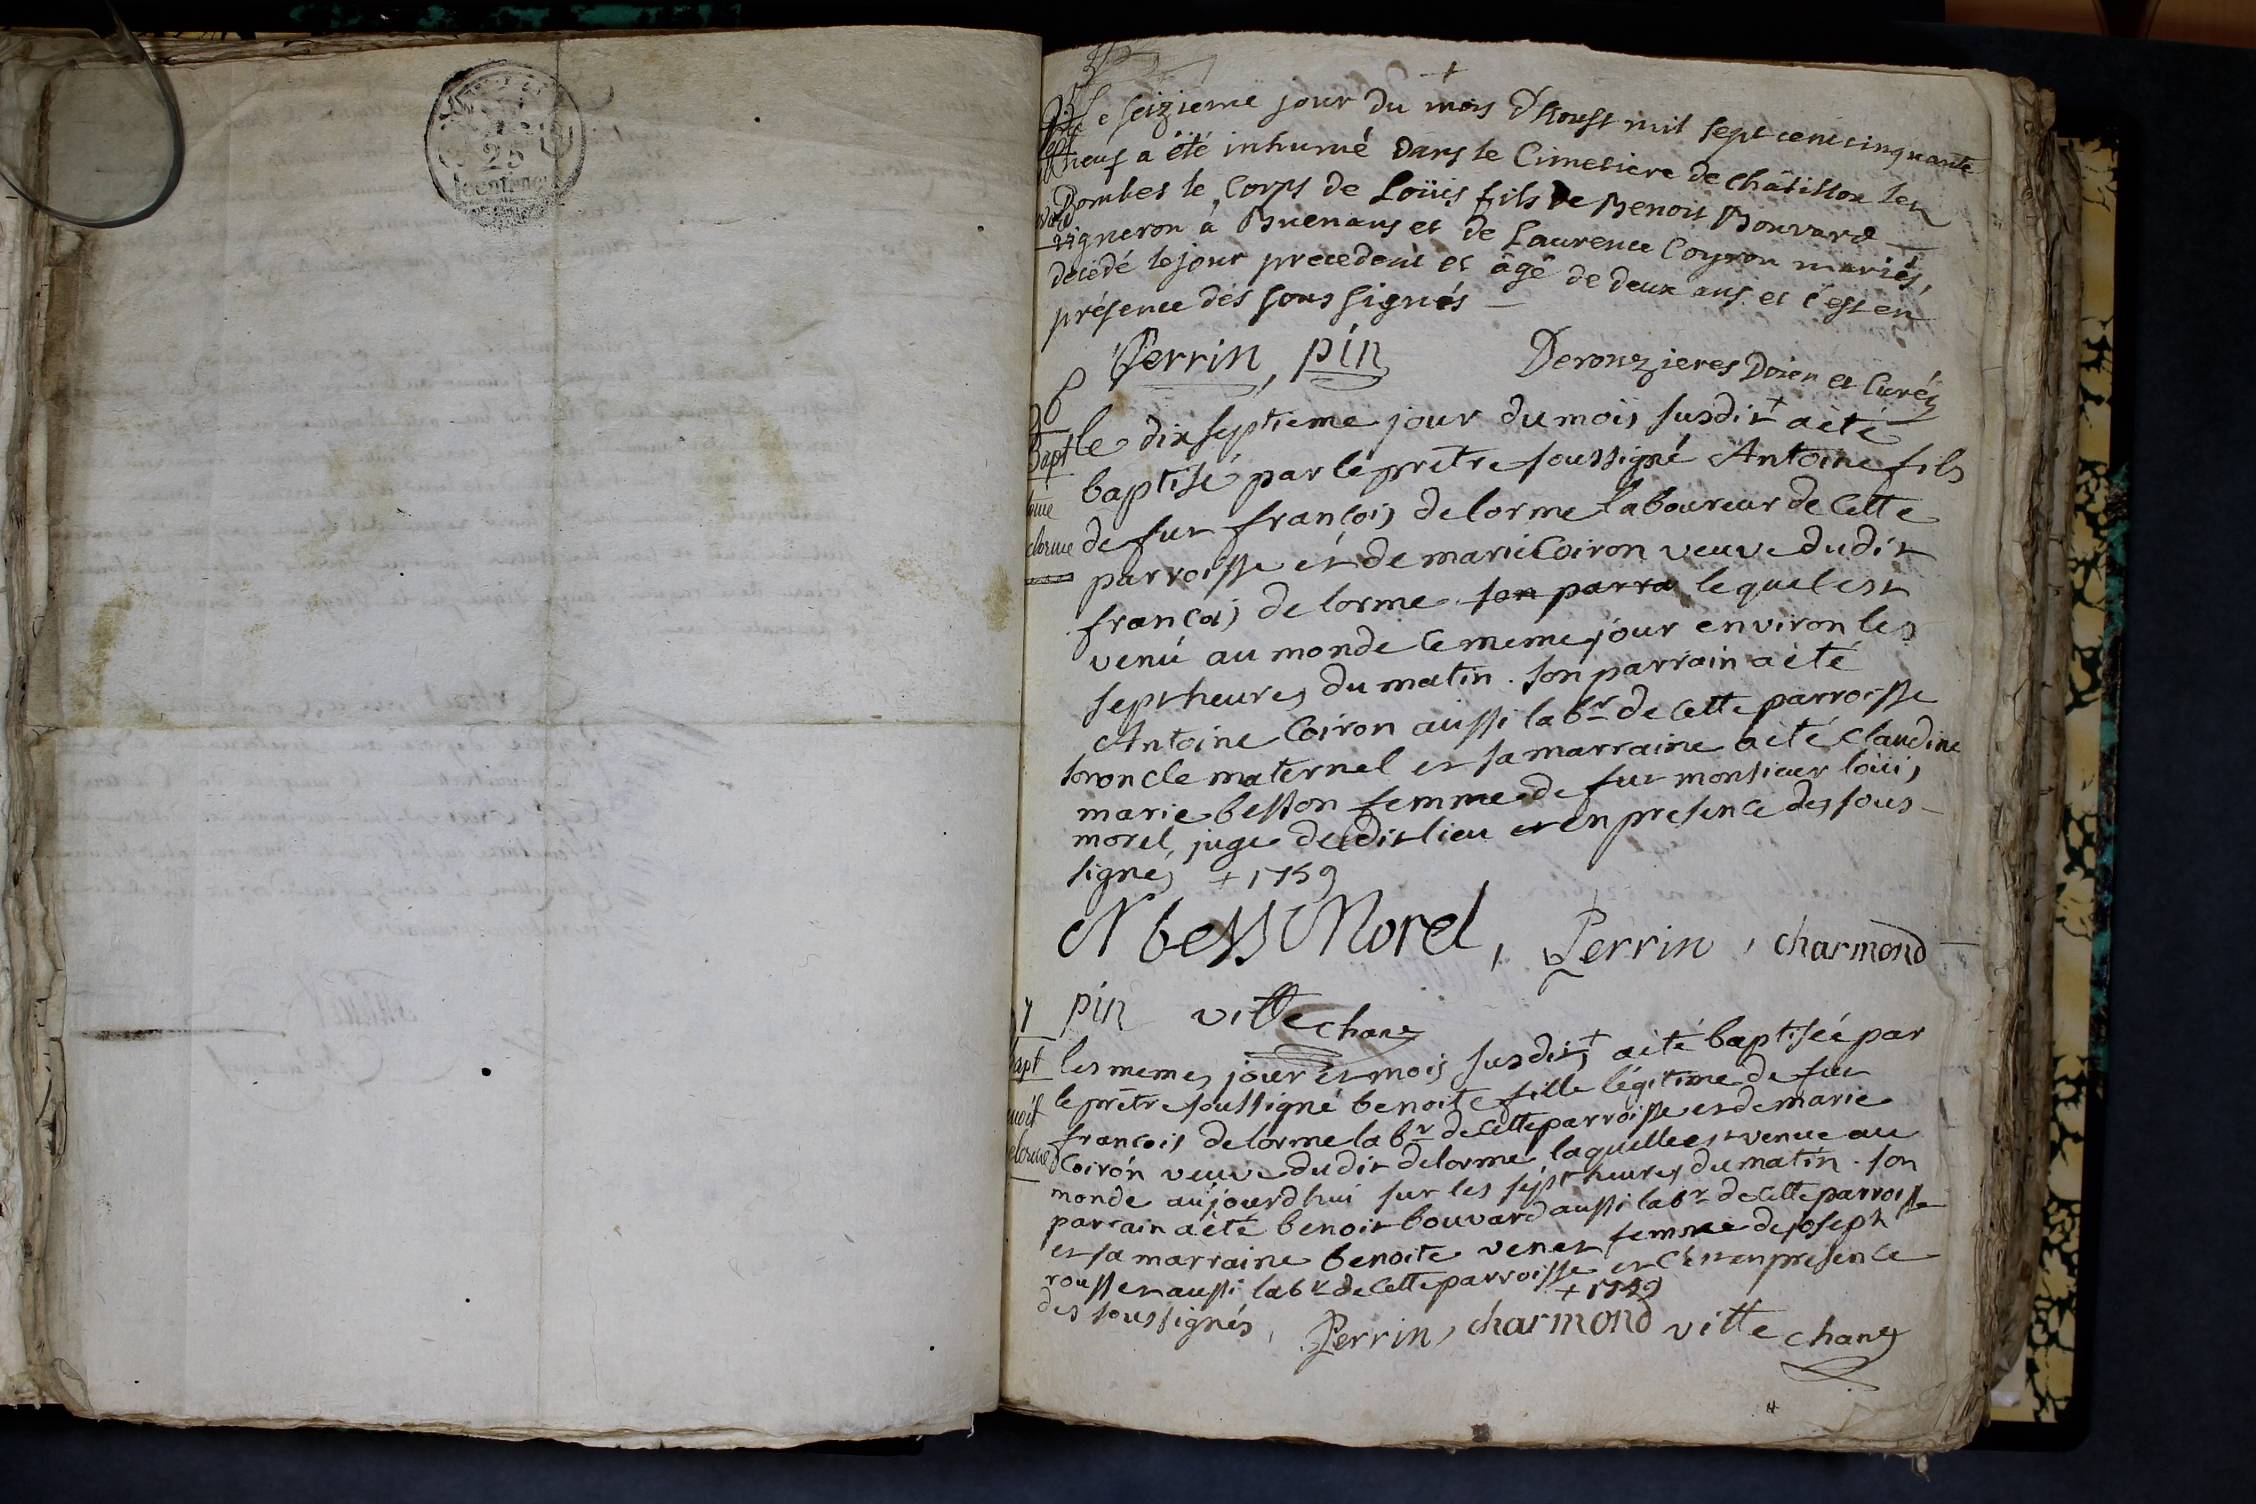 25
centimes
Le seizieme jour du mois d'Aoust mil sept cent cinquante
neuf a été inhumé dans le Cimetiere de Châtillon les
Dombes le Corps de Loüis fils de Benoit Bouvard
vigneron à Buenans et de Laurence Coyron mariés,
décédé le jour precedent et âgé de deux ans et c'est en
présence des soussignés
Perrin, pin
Deronzieres Doien et Curé
26
Bapt
toine
elorme
le dix septieme jour du mois susdit + a été
baptisé par le prêtre soussigné Antoine fils
de fut françois delorme laboureur de cette
parroisse et de marie Coiron veuve dudit
françois delorme son parra lequel est
venú au monde le meme jour environ les
sept heures du matin. son parrain a été
Antoine Coiron aussi labr de cette parroisse
son oncle maternel et sa marraine a été Claudine
marie besson femme de fut monsieur loüis
morel, juge dedit lieu et en presence des sous-
signés + 1759
bess Morel, Perrin, charmond
pin villechanz
7
Bapt
noit
elorme
les memes jour et mois susdits + a été baptisée par
le prêtre soussigné benoite fille légitime de fut
françois delorme labr de cette parroisse et de marie
Coiron veuve dudit delorme laquelle est venue au
monde aujourdhui sur les sept heures du matin. son
parrain a été benoit bouvard aussi labr de cette parroisse
et sa marraine benoite venet femme de joseph
rousset aussi labr de cette parroisse et c'est en presence
des soussignés, + 1759
Perrin, charmond villechanz